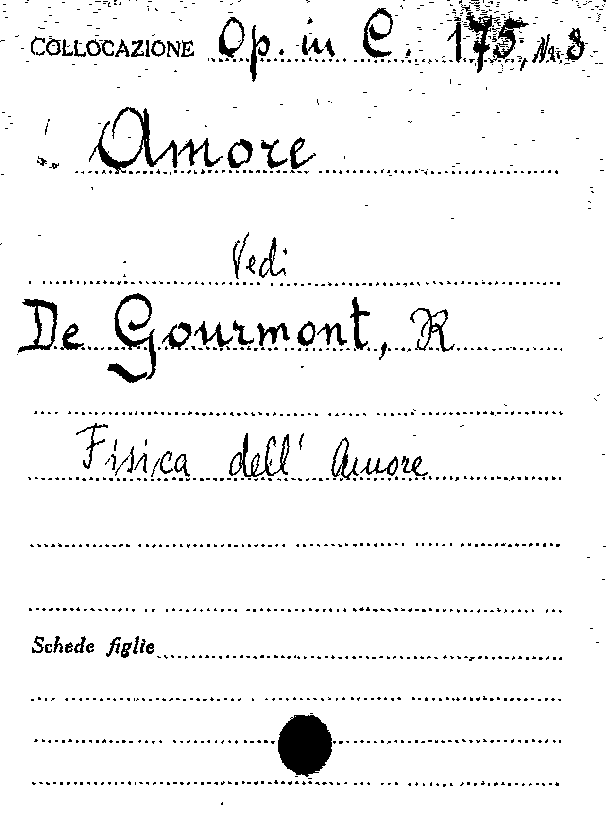 COLLOCAZIONE Op. in C. 175, Nr. 8
Amore
Vedi
De Gourmont, R
Fisica dell' Amore
Schede figlie